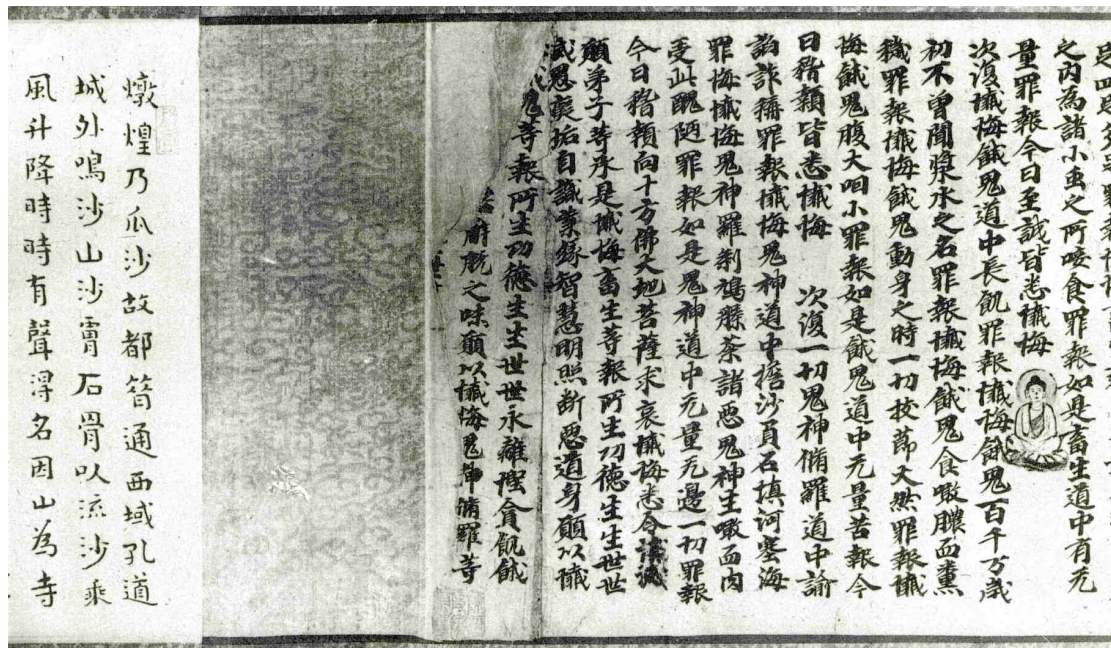 之内為諸小虫之所唼食罪報如是畜生道中有无
量罪報今日至誠皆悉懺悔
次復懺悔餓鬼道中長飢罪報懺悔餓鬼百千万歲
初不曾聞漿水之名罪報懺悔餓鬼食噉膿血糞
穢罪報懺悔餓鬼動身之時一切挍莭火然罪報懺
悔餓鬼腹大咽小罪報如是餓鬼道中无量苦報今
日稽顙皆悉懺悔 次復一切鬼神脩羅道中諭
諂詐稱罪報懺悔鬼神道中擔沙負石填河塞海
罪悔懺悔鬼神羅刹鳩膝荼諸惡鬼神生噉血肉
受此醜陋罪報如是鬼神道中无量无邊一切罪報
今日稽顙向十方佛大地菩薩求哀懺悔悉令
願弟子等承是懺悔畜生等報所生功德生生世世
滅愚癡垢自識業緣智慧明照断惡道身願以懺
鬼等報所生功德生生世世永離慳貪飢餓
之味願以懺悔鬼神脩羅等
燉煌乃瓜沙故都昝通西域孔道
城外鳴沙山沙膚石骨以流沙乘
風升降時時有聲得名因山為寺